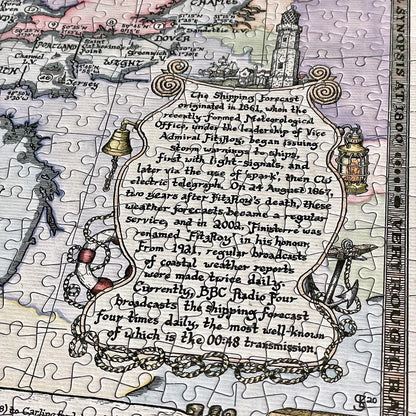 PORTLAND
DOVER
WIGHT
Greenwich
50°20'N
The Shipping Forecast
originated in 1861, when the
recently formed Meteorological
Office, under the leadership of Vice
Admiral FitzRoy, began issuing
storm warnings to ships,
first with light-signals, and
later via the use of 'spark', then
electric telegraph. On 24 August 1867,
two years after FitzRoy's death, these
weather forecasts became a regular
service, and in 2002, 'Finisterre was
renamed 'FitzRoy' in his honour.
From 1921, regular broadcasts
of coastal weather reports
were made twice daily.
Currently, BBC Radio Four
broadcasts the Shipping Forecast
four times daily, the most well-known
of which is the 00:48 transmission.
20
to Carling
SYNOPSIS AT 1800
VERY ROUGH